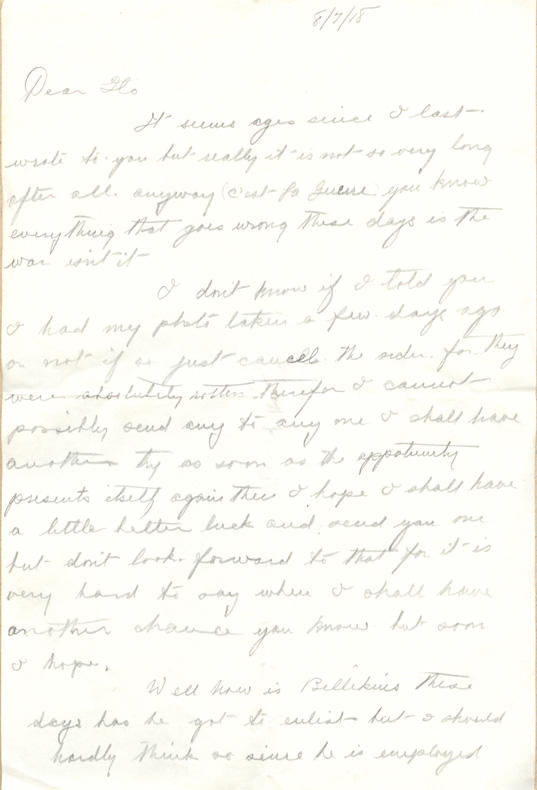 8/7/18
Dear Flo
It seems ages since I last
wrote to you but really it is not so very long
after all. anyway (c'est la Guerre) you know
everything that goes wrong these days is the
war isn't it
I don't know if I told you
I had my photo taken a few days ago
or not if so just cancell the order for they
were absolutely rotten therefor I cannot
possibly send any to any one I shall have
another try as soon as the oppotunity
presents itself again then I hope I shall have
a little better luck and send you one
but don't look forward to that for it is
very hard to say when I shall have
another chance you know but soon
I hope.
Well how is Billikins these
days has he got to enlist but I should
hardly think so since he is employed